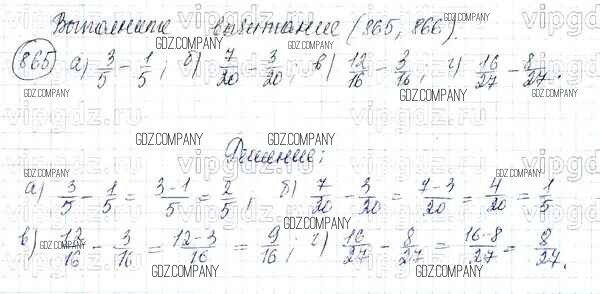 Выполните вычитание (865, 866).
865 а) 3/5 - 1/5; б) 7/20 - 3/20; в) 12/16 - 3/16; г) 16/27 - 8/27.
Решение:
а) 3/5 - 1/5 = 3-1/5 = 2/5; б) 7/20 - 3/20 = 7-3/20 = 4/20 = 1/5
в) 12/16 - 3/16 = 12-3/16 = 9/16; г) 16/27 - 8/27 = 16-8/27 = 8/27.
GDZ.COMPANY
vipgdz.ru